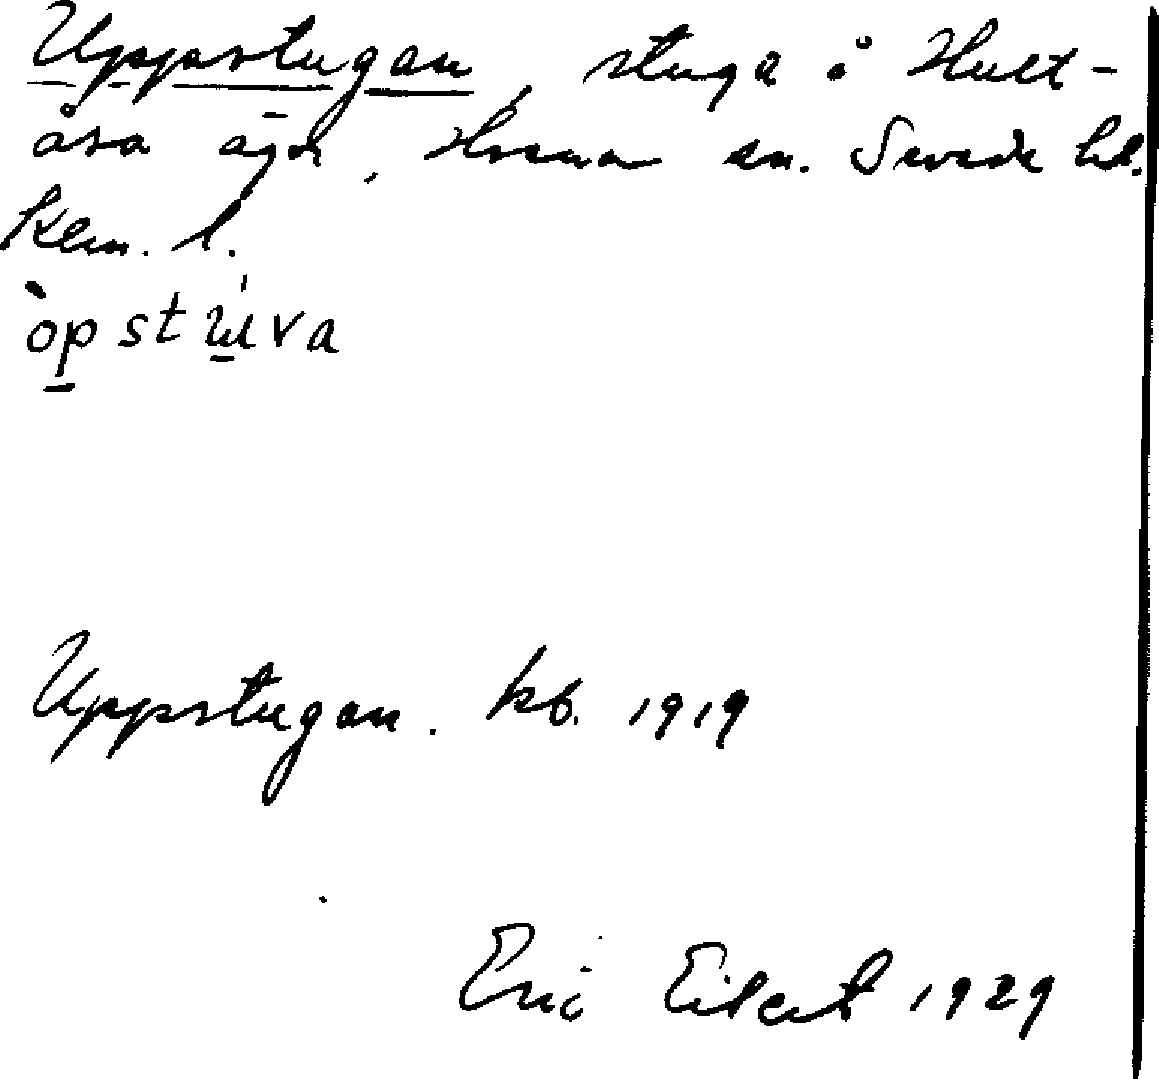 Uppstugan, stuga å Hult-
åsa ägor, Hvena sn. Sevede hd.
Kalm. l.
òpstúva
Uppstugan. kb. 1919
Eric Eilert 1929